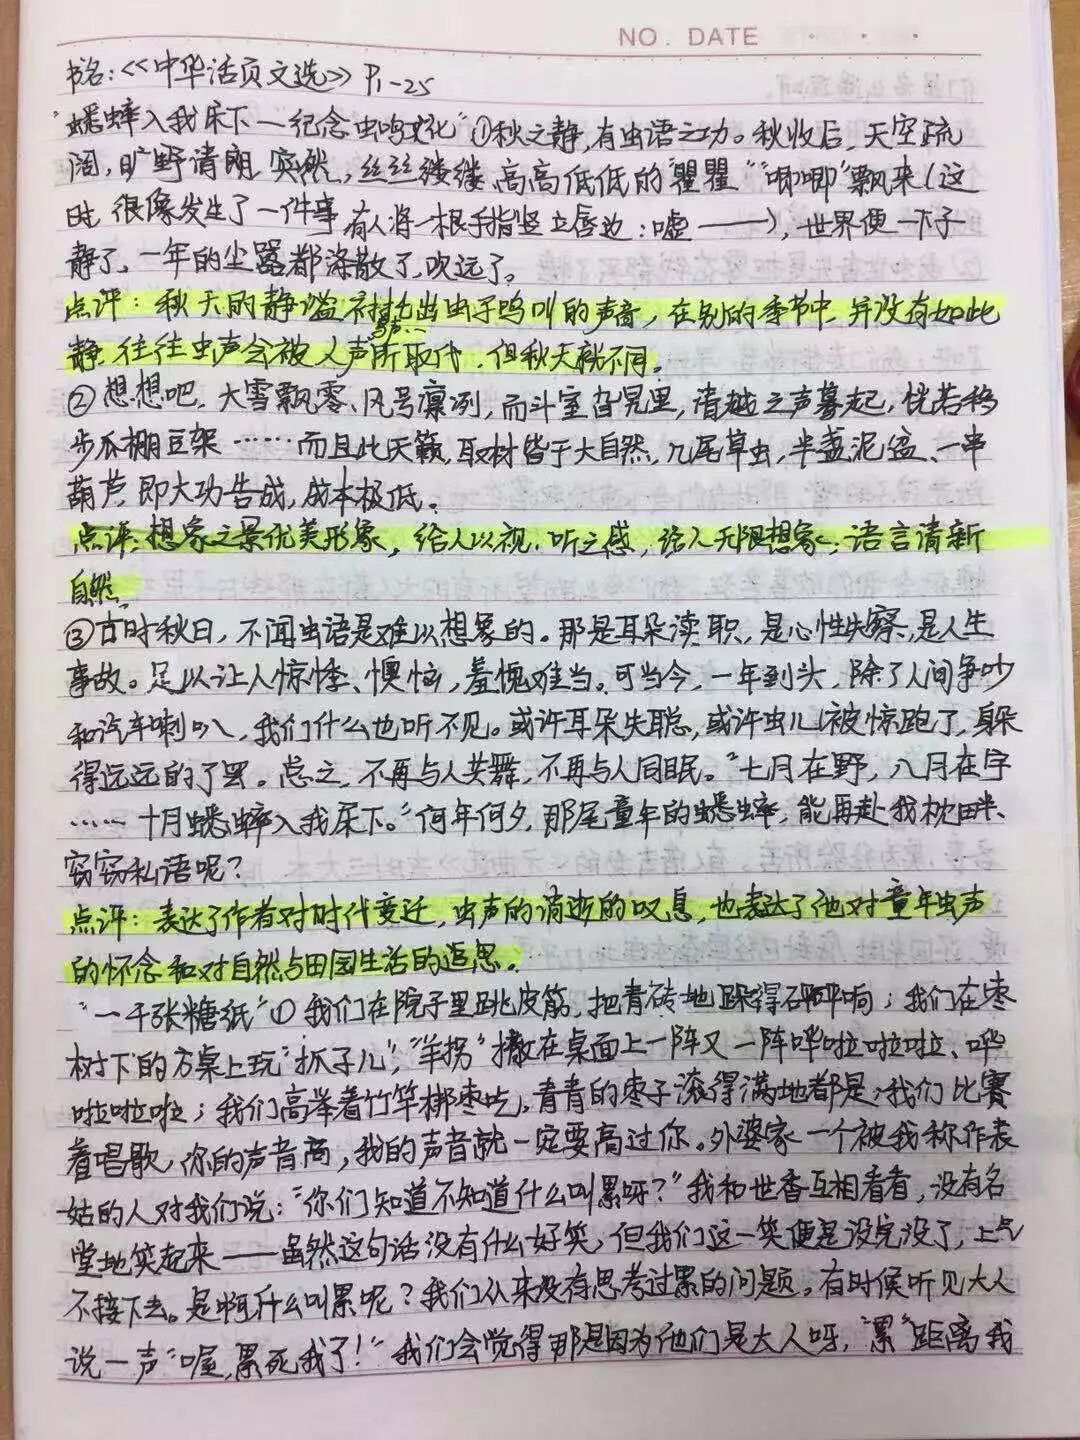 NO. DATE
书名:《中华活页文选》P1-25
"蟋蟀入我床下—纪念虫鸣文化"①秋之静,有虫语之功。秋收后,天空疏
阔,旷野清朗,突然,丝丝缕缕、高高低低的"瞿瞿""唧唧"飘来(这
时,很像发生了一件事 有人将一根手指竖立唇边:嘘——),世界便一下子
静了,一年的尘嚣都涤散了,吹远了。
点评:秋天的静谧衬托出虫子鸣叫的声音,在别的季节中,并没有如此
静,往往虫声会被人声所取代,但秋天就不同。
②想想吧,大雪飘零、风号凛冽,而斗室旮旯里,清越之声蓦起,恍若移
步瓜棚豆架……而且此天籁,取材皆于大自然,几尾草虫,半盏泥盆、一串
葫芦,即大功告成,成本极低。
点评:想象之景优美形象,给人以视、听之感,给人无限想象;语言清新
自然。
③古时秋日,不闻虫语是难以想象的。那是耳朵渎职,是心性失察,是人生
事故。足以让人惊悸、懊恼,羞愧难当。可当今,一年到头,除了人间争吵
和汽车喇叭,我们什么也听不见。或许耳朵失聪,或许虫儿被惊跑了,躲
得远远的了罢。总之,不再与人共舞,不再与人同眠。"七月在野,八月在宇
……十月蟋蟀入我床下。"何年何夕,那尾童年的蟋蟀,能再赴我枕畔、
窃窃私语呢?
点评:表达了作者对时代变迁,虫声的消逝的叹息,也表达了他对童年虫声
的怀念和对自然与田园生活的追思。
"一千张糖纸"①我们在院子里跳皮筋,把青砖地跺得砰砰响;我们在枣
树下的方桌上玩"抓子儿","羊拐"撒在桌面上一阵又一阵哗啦啦啦、哗
啦啦啦;我们高举着竹竿梆枣吃,青青的枣子滚得满地都是;我们比赛
着唱歌,你的声音高,我的声音就一定要高过你。外婆家一个被我称作表
姑的人对我们说:"你们知道不知道什么叫累呀?"我和世香互相看看,没有名
堂地笑起来——虽然这句话没有什么好笑,但我们这一笑便是没完没了,上气
不接下去。是啊什么叫累呢?我们从来没有思考过累的问题。有时候听见大人
说一声"喔,累死我了!"我们会觉得那是因为他们是大人呀,"累"距离我